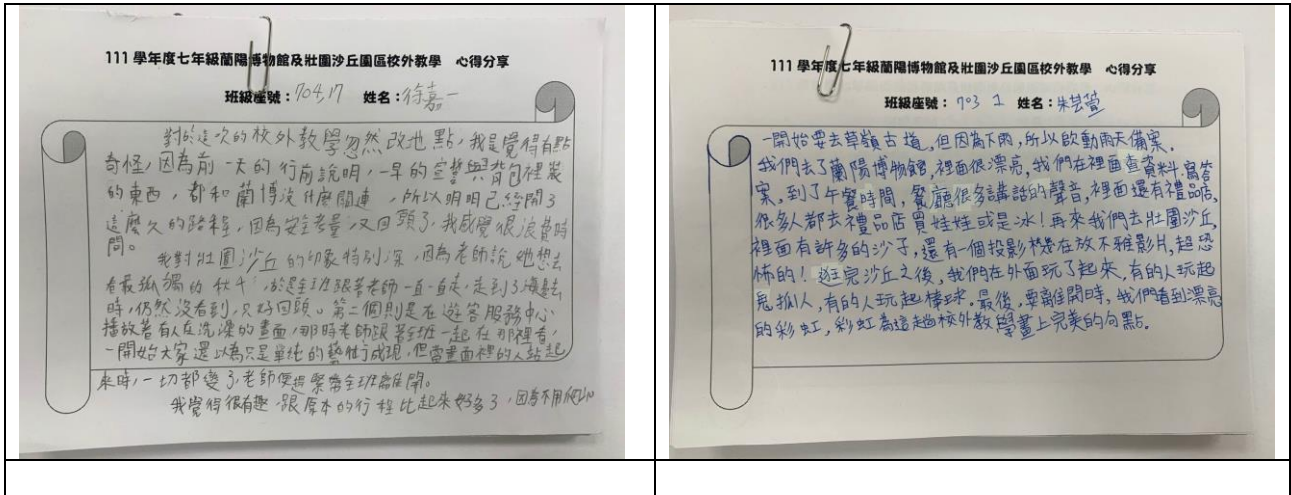 111 學年度七年級蘭陽博物館及壯圍沙丘園區校外教學 心得分享
班級座號：704,17 姓名：徐嘉一
對於這次的校外教學忽然改地點，我是覺得有點
奇怪，因為前一天的行前說明，一早的宣誓與背包裡裝
的東西，都和蘭博沒什麼關連，所以明明已經開了
這麼久的路程，因為安全考量又回頭了，我感覺很浪費時
間。
我對壯圍沙丘的印象特別深，因為老師說她想去
看最孤獨的秋千，於是全班跟著老師一直一直走，走到了海邊去
時，仍然沒看到，只好回頭。第二個則是在遊客服務中心
播放著有人在洗澡的畫面，那時老師跟著全班一起在那裡看，
一開始大家還以為只是單純的藝術成現，但當畫面裡的人站起
來時，一切都變了，老師便趕緊帶全班離開。
我覺得很有趣，跟原本的行程比起來好多了，因為不用爬山
111 學年度七年級蘭陽博物館及壯圍沙丘園區校外教學 心得分享
班級座號：703 1 姓名：朱芸萱
一開始要去草嶺古道，但因為下雨，所以啟動雨天備案，
我們去了蘭陽博物館，裡面很漂亮，我們在裡面查資料、寫答
案，到了午餐時間，餐廳很多講話的聲音，裡面還有禮品店，
很多人都去禮品店買娃娃或是冰！再來我們去壯圍沙丘，
裡面有許多的沙子，還有一個投影機是在放不雅影片，超恐
怖的！逛完沙丘之後，我們在外面玩了起來，有的人玩起
鬼抓人，有的人玩起棒球。最後，要離開時，我們看到漂亮
的彩虹，彩虹為這趟校外教學畫上完美的句點。